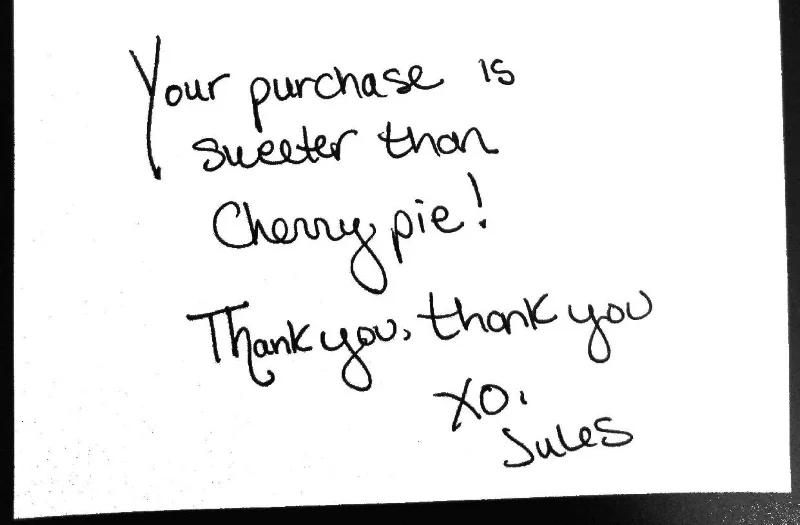 Your purchase is
sweeter than
Cherry pie!
Thank you, thank you
XO,
Jules